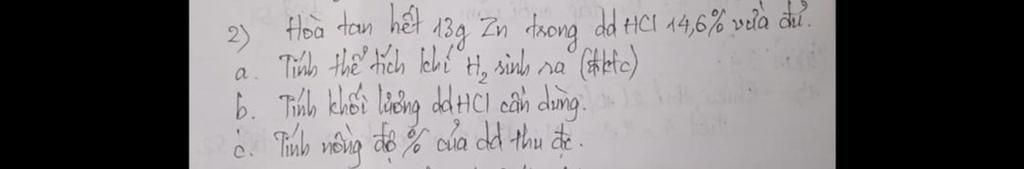 2) Hoà tan hết 13g Zn trong dd HCl 14,6% vừa đủ.
a. Tính thể tích khí H₂ sinh ra (đktc)
b. Tính khối lượng dd HCl cần dùng.
c. Tính nồng độ % của dd thu đc.